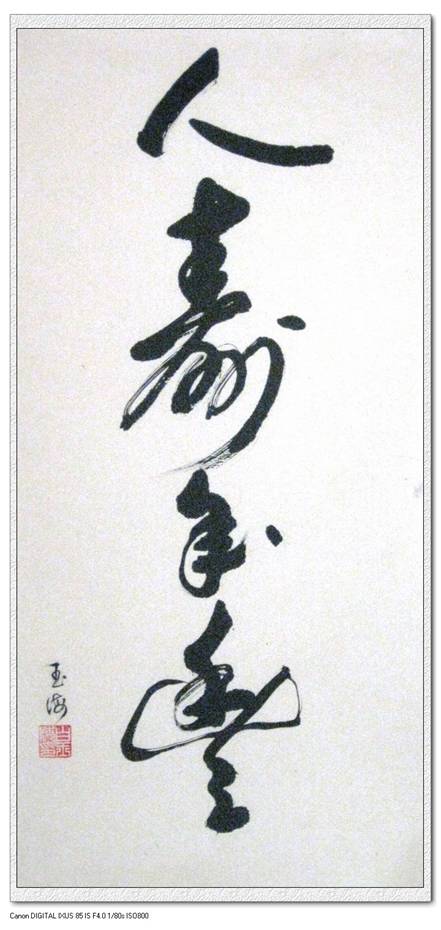 人壽年豐
玉海
Canon DIGITAL IXUS 85 IS F4.0 1/80s ISO800